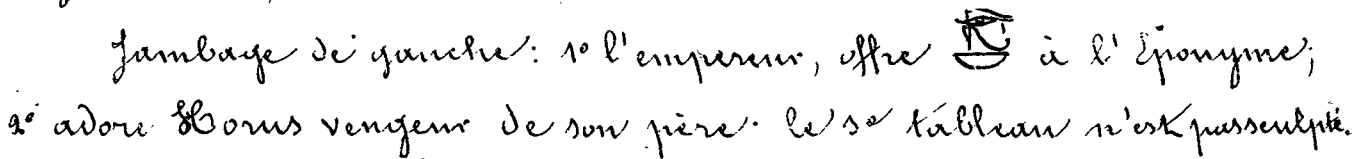 Jambage de gauche: 1° l'empereur, offre 𓂀𓎟 à l'Eponyme;
2° adore Horus vengeur de son père. le 3e tableau n'est pas sculpté.